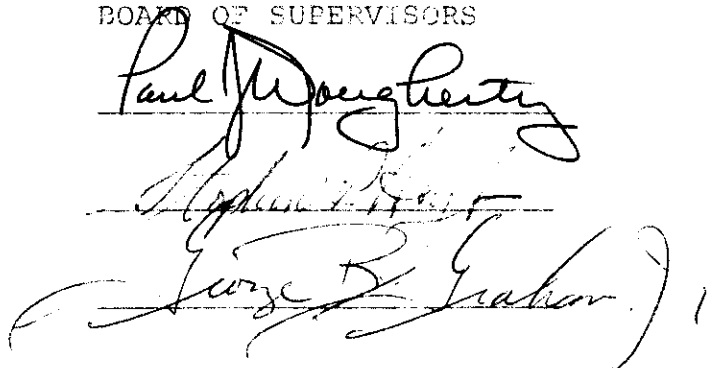 BOARD OF SUPERVISORS
Paul J Dougherty
Stephen
George B. Graham Jr